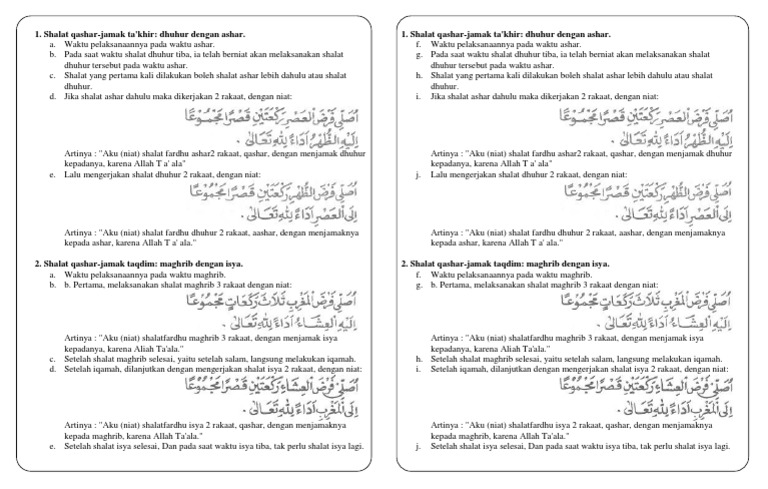 1. Shalat qashar-jamak ta'khir: dhuhur dengan ashar.
a. Waktu pelaksanaannya pada waktu ashar.
b. Pada saat waktu dhuhur tiba, ia telah berniat akan melaksanakan shalat
dhuhur tersebut pada waktu ashar.
c. Shalat yang pertama kali dilakukan boleh shalat ashar lebih dahulu atau shalat
dhuhur.
d. Jika shalat ashar dahulu maka dikerjakan 2 rakaat, dengan niat:
اُصَلِّيْ فَرْضَ الْعَصْرِ رَكْعَتَيْنِ قَصْرًا مَجْمُوْعًا
اِلَيْهِ الظُّهْرُ اَدَاءً لِلّٰهِ تَعَالٰى .
Artinya : "Aku (niat) shalat fardhu ashar2 rakaat, qashar, dengan menjamak dhuhur
kepadanya, karena Allah T a' ala"
e. Lalu mengerjakan shalat dhuhur 2 rakaat, dengan niat:
اُصَلِّيْ فَرْضَ الظُّهْرِ رَكْعَتَيْنِ قَصْرًا مَجْمُوْعًا
اِلَى الْعَصْرِ اَدَاءً لِلّٰهِ تَعَالٰى .
Artinya : "Aku (niat) shalat fardhu dhuhur 2 rakaat, aashar, dengan menjamaknya
kepada ashar, karena Allah T a' ala."
2. Shalat qashar-jamak taqdim: maghrib dengan isya.
a. Waktu pelaksanaannya pada waktu maghrib.
b. b. Pertama, melaksanakan shalat maghrib 3 rakaat dengan niat:
اُصَلِّيْ فَرْضَ الْمَغْرِبِ ثَلَاثَ رَكَعَاتٍ مَجْمُوْعًا
اِلَيْهِ الْعِشَاءُ اَدَاءً لِلّٰهِ تَعَالٰى .
Artinya : "Aku (niat) shalatfardhu maghrib 3 rakaat, dengan menjamak isya
kepadanya, karena Aliah Ta'ala."
c. Setelah shalat maghrib selesai, yaitu setelah salam, langsung melakukan iqamah.
d. Setelah iqamah, dilanjutkan dengan mengerjakan shalat isya 2 rakaat, dengan niat:
اُصَلِّيْ فَرْضَ الْعِشَاءِ رَكْعَتَيْنِ قَصْرًا مَجْمُوْعًا
اِلَى الْمَغْرِبِ اَدَاءً لِلّٰهِ تَعَالٰى .
Artinya : "Aku (niat) shalatfardhu isya 2 rakaat, qashar, dengan menjamaknya
kepada maghrib, karena Allah Ta'ala."
e. Setelah shalat isya selesai, Dan pada saat waktu isya tiba, tak perlu shalat isya lagi.
1. Shalat qashar-jamak ta'khir: dhuhur dengan ashar.
f. Waktu pelaksanaannya pada waktu ashar.
g. Pada saat waktu dhuhur tiba, ia telah berniat akan melaksanakan shalat
dhuhur tersebut pada waktu ashar.
h. Shalat yang pertama kali dilakukan boleh shalat ashar lebih dahulu atau shalat
dhuhur.
i. Jika shalat ashar dahulu maka dikerjakan 2 rakaat, dengan niat:
اُصَلِّيْ فَرْضَ الْعَصْرِ رَكْعَتَيْنِ قَصْرًا مَجْمُوْعًا
اِلَيْهِ الظُّهْرُ اَدَاءً لِلّٰهِ تَعَالٰى .
Artinya : "Aku (niat) shalat fardhu ashar2 rakaat, qashar, dengan menjamak dhuhur
kepadanya, karena Allah T a' ala"
j. Lalu mengerjakan shalat dhuhur 2 rakaat, dengan niat:
اُصَلِّيْ فَرْضَ الظُّهْرِ رَكْعَتَيْنِ قَصْرًا مَجْمُوْعًا
اِلَى الْعَصْرِ اَدَاءً لِلّٰهِ تَعَالٰى .
Artinya : "Aku (niat) shalat fardhu dhuhur 2 rakaat, aashar, dengan menjamaknya
kepada ashar, karena Allah T a' ala."
2. Shalat qashar-jamak taqdim: maghrib dengan isya.
f. Waktu pelaksanaannya pada waktu maghrib.
g. b. Pertama, melaksanakan shalat maghrib 3 rakaat dengan niat:
اُصَلِّيْ فَرْضَ الْمَغْرِبِ ثَلَاثَ رَكَعَاتٍ مَجْمُوْعًا
اِلَيْهِ الْعِشَاءُ اَدَاءً لِلّٰهِ تَعَالٰى .
Artinya : "Aku (niat) shalatfardhu maghrib 3 rakaat, dengan menjamak isya
kepadanya, karena Aliah Ta'ala."
h. Setelah shalat maghrib selesai, yaitu setelah salam, langsung melakukan iqamah.
i. Setelah iqamah, dilanjutkan dengan mengerjakan shalat isya 2 rakaat, dengan niat:
اُصَلِّيْ فَرْضَ الْعِشَاءِ رَكْعَتَيْنِ قَصْرًا مَجْمُوْعًا
اِلَى الْمَغْرِبِ اَدَاءً لِلّٰهِ تَعَالٰى .
Artinya : "Aku (niat) shalatfardhu isya 2 rakaat, qashar, dengan menjamaknya
kepada maghrib, karena Allah Ta'ala."
j. Setelah shalat isya selesai, Dan pada saat waktu isya tiba, tak perlu shalat isya lagi.